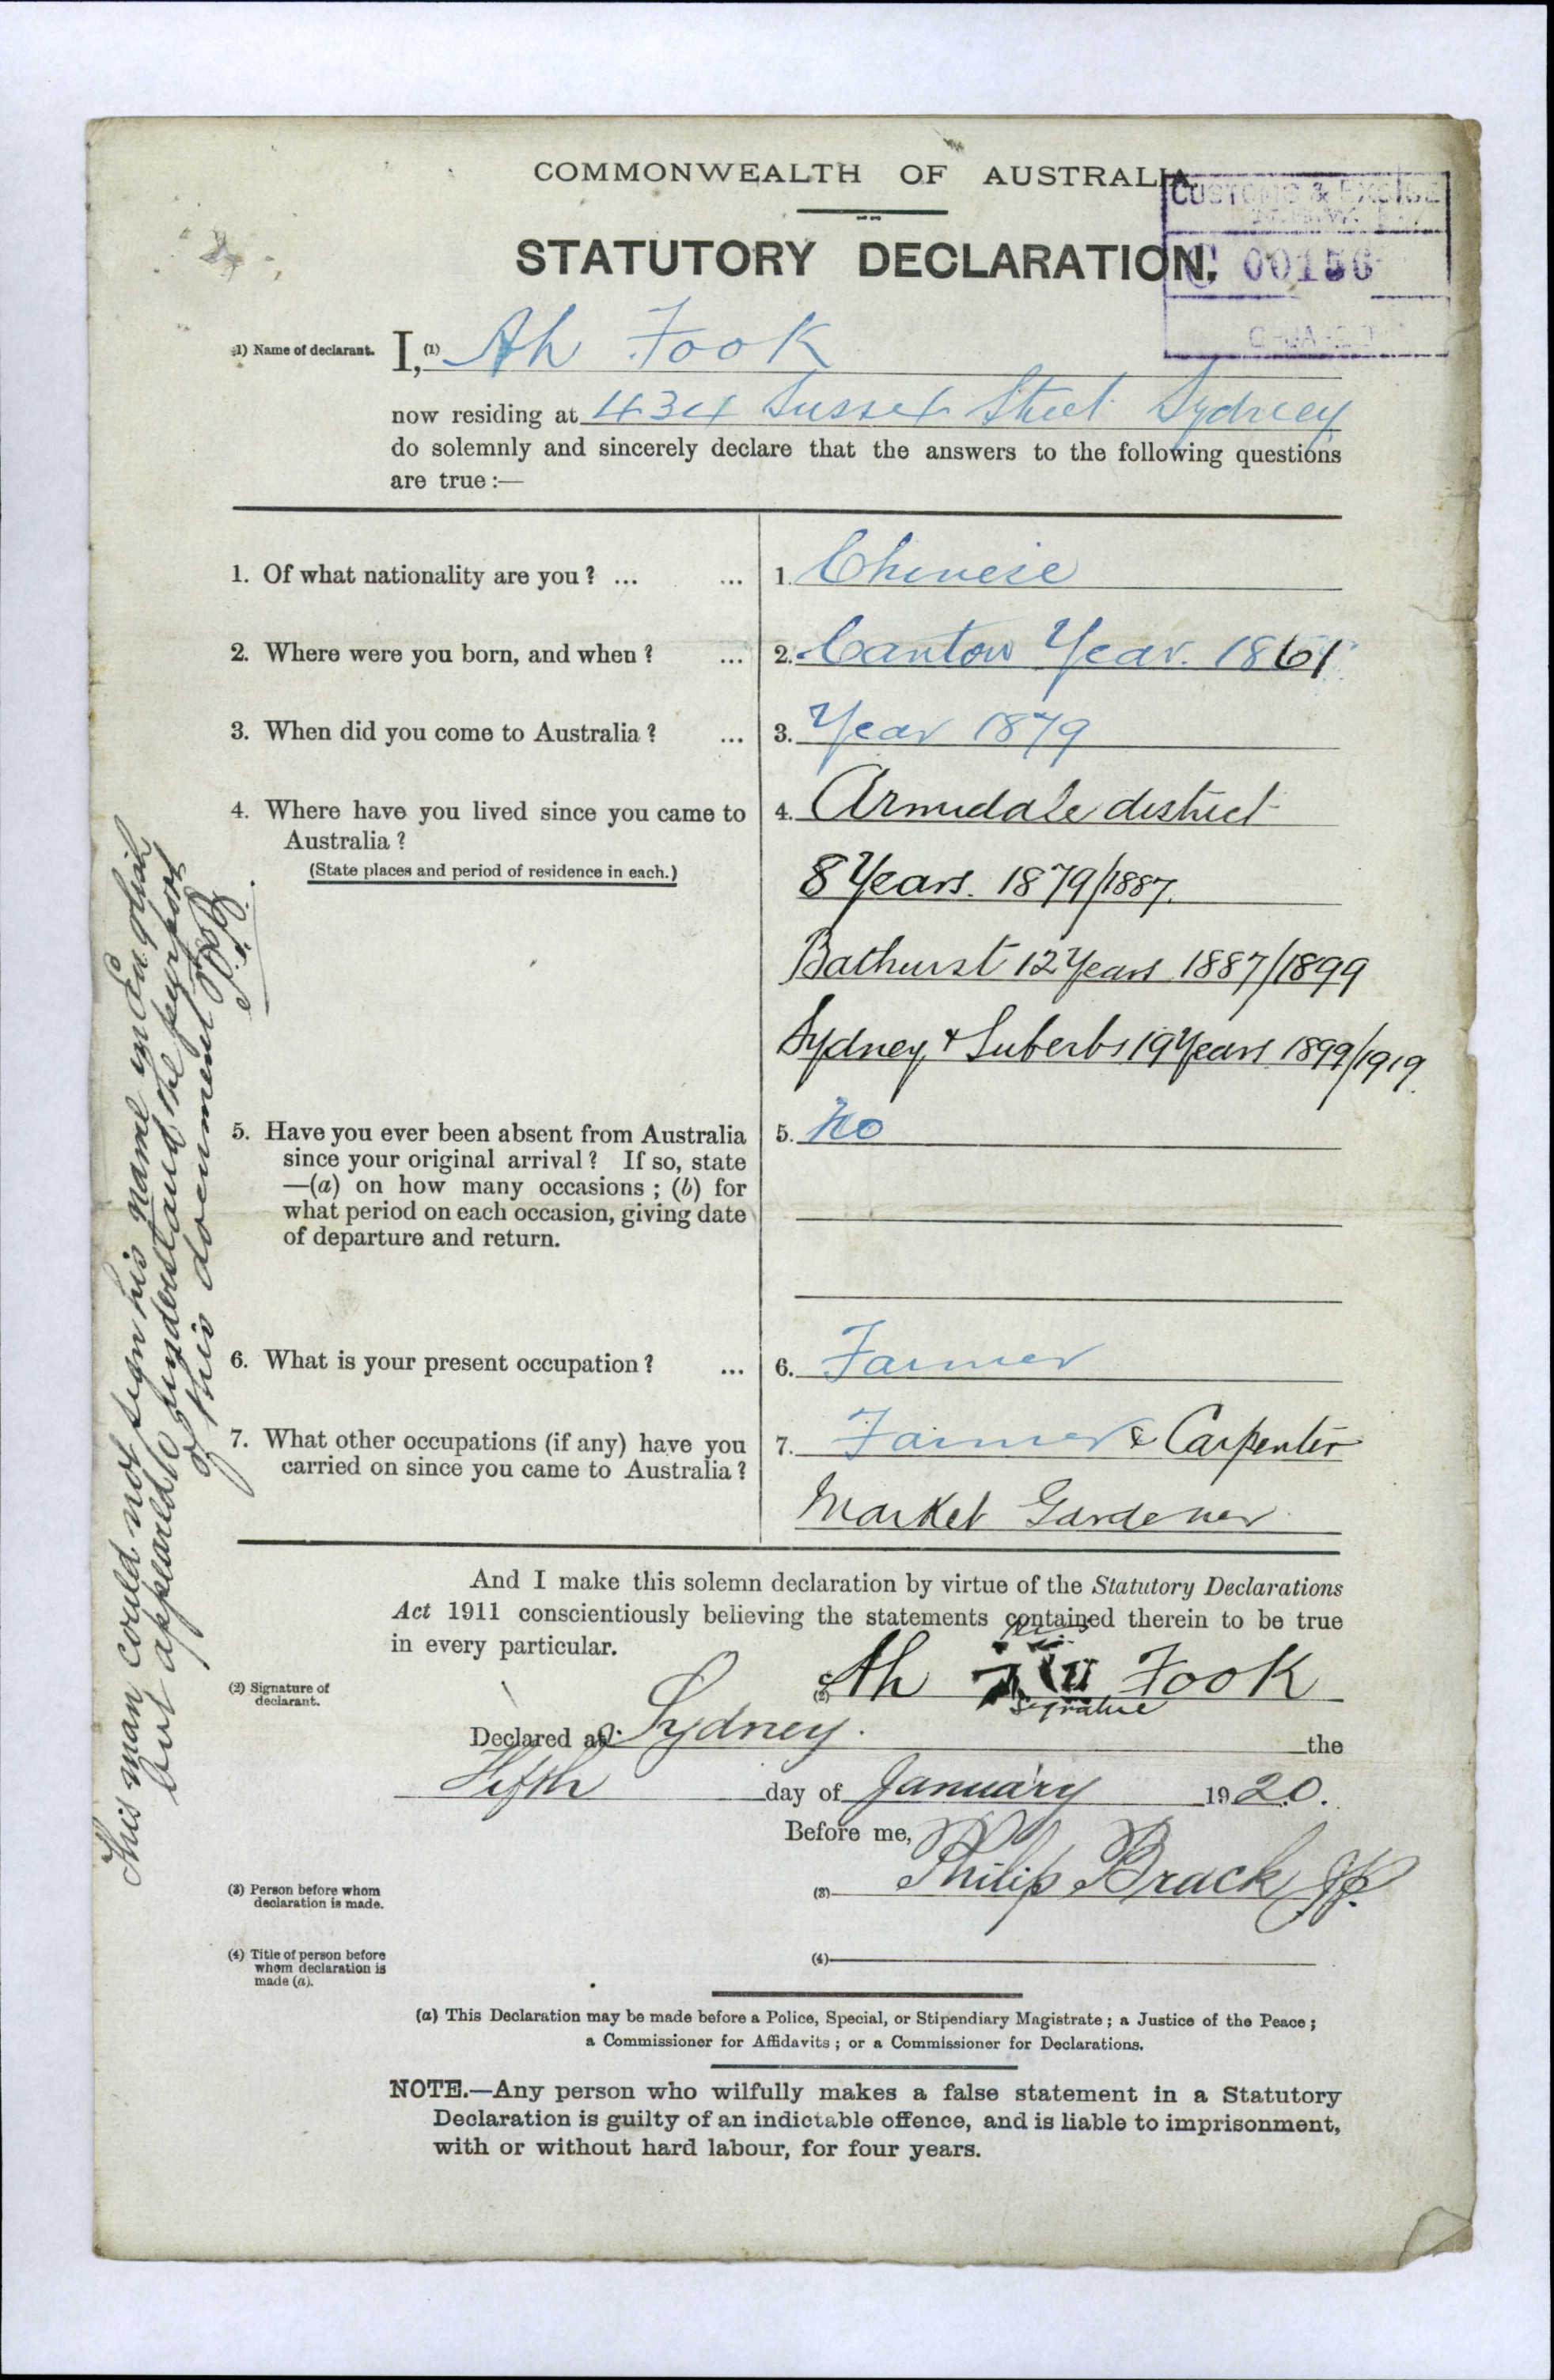 COMMONWEALTH OF AUSTRALIA.
CUSTOMS & EXCISE
STATUTORY DECLARATION.
(1) Name of declarant. I, (1) Ah Fook
now residing at 434 Sussex Street Sydney
do solemnly and sincerely declare that the answers to the following questions
are true:—
1. Of what nationality are you? ... ... 1. Chinese
2. Where were you born, and when? ... 2. Canton Year. 1861
3. When did you come to Australia? ... 3. Year 1879
4. Where have you lived since you came to 4. Armidale district
Australia?
(State places and period of residence in each.)
8 Years. 1879/1887.
Bathurst 12 Years 1887/1899
Sydney & Suberbs 19 Years 1899/1919.
5. Have you ever been absent from Australia 5. No
since your original arrival? If so, state
—(a) on how many occasions; (b) for
what period on each occasion, giving date
of departure and return.
6. What is your present occupation? ... 6. Farmer
7. What other occupations (if any) have you 7. Farmer & Carpenter
carried on since you came to Australia?
Market Gardener
And I make this solemn declaration by virtue of the Statutory Declarations
Act 1911 conscientiously believing the statements contained therein to be true
in every particular.
his
(2) Signature of (2) Ah Fook
declarant.
Signature
Declared at Sydney. the
Fifth day of January 1920.
Before me,
(3) Person before whom (3) Philip Brack JP.
declaration is made.
(4) Title of person before (4)
whom declaration is
made (a).
(a) This Declaration may be made before a Police, Special, or Stipendiary Magistrate; a Justice of the Peace;
a Commissioner for Affidavits; or a Commissioner for Declarations.
NOTE.—Any person who wilfully makes a false statement in a Statutory
Declaration is guilty of an indictable offence, and is liable to imprisonment,
with or without hard labour, for four years.
This man could not sign his name in English
but appeared to understand the purport
of this document